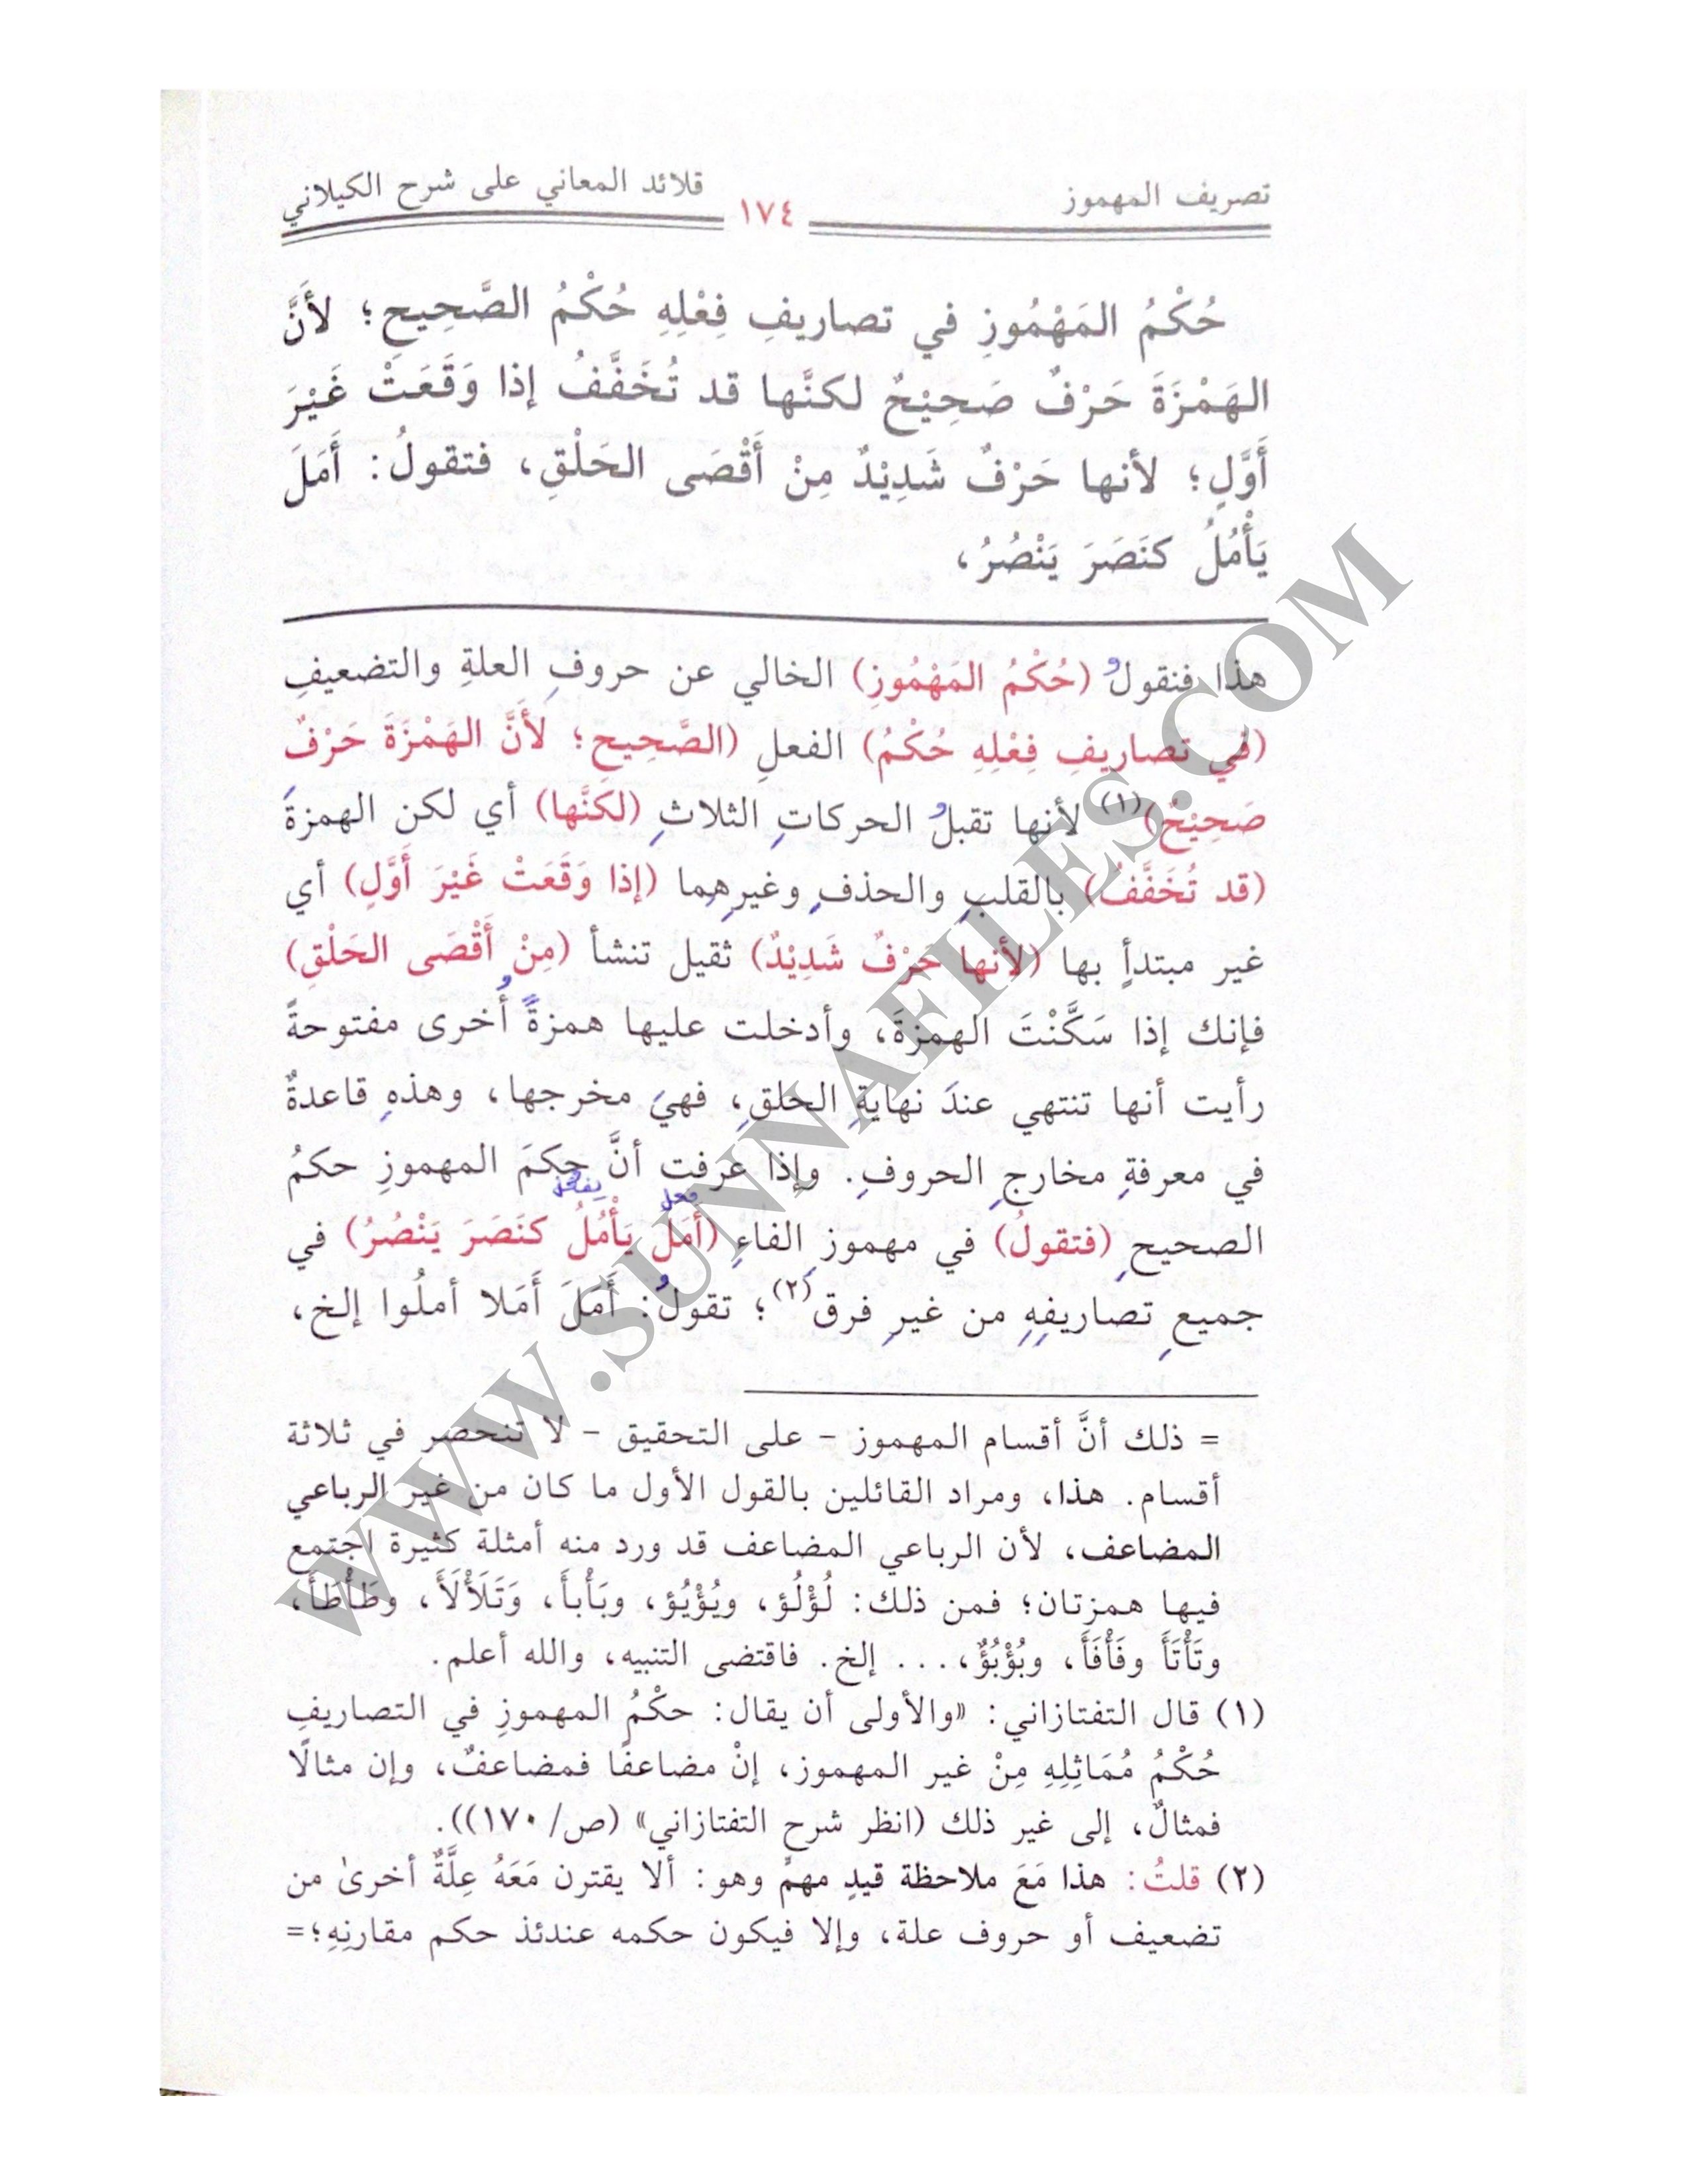 تصريف المهموز ١٧٤ قلائد المعاني على شرح الكيلاني
حُكْمُ المَهْمُوزِ في تصاريفِ فِعْلِهِ حُكْمُ الصَّحِيحِ؛ لأَنَّ
الهَمْزَةَ حَرْفٌ صَحِيْحٌ لكنَّها قد تُخَفَّفُ إذا وَقَعَتْ غَيْرَ
أَوَّلٍ؛ لأنها حَرْفٌ شَدِيْدٌ مِنْ أَقْصَى الحَلْقِ، فتقولُ: أَمَلَ
يَأْمُلُ كنَصَرَ يَنْصُرُ،
هذا فنقولُ (حُكْمُ المَهْمُوزِ) الخالي عن حروفِ العلةِ والتضعيفِ
(في تصاريفِ فِعْلِهِ حُكْمُ) الفعلِ (الصَّحِيحِ؛ لأَنَّ الهَمْزَةَ حَرْفٌ
صَحِيْحٌ)(١) لأنها تقبلُ الحركاتِ الثلاثِ (لكنَّها) أي لكن الهمزةَ
(قد تُخَفَّفُ) بالقلبِ والحذفِ وغيرِهِما (إذا وَقَعَتْ غَيْرَ أَوَّلٍ) أي
غير مبتدأٍ بها (لأنها حَرْفٌ شَدِيْدٌ) ثقيل تنشأ (مِنْ أَقْصَى الحَلْقِ)
فإنك إذا سَكَّنْتَ الهمزةَ، وأدخلت عليها همزةً أُخرى مفتوحةً
رأيت أنها تنتهي عندَ نهايةِ الحلقِ، فهيَ مخرجها، وهذهِ قاعدةٌ
في معرفةِ مخارجِ الحروفِ. وإذا عرفت أنَّ حكمَ المهموزِ حكمُ
فعل
الصحيحِ (فتقولُ) في مهموزِ الفاءِ (أَمَلَ يَأْمُلُ كنَصَرَ يَنْصُرُ) في
جميعِ تصاريفِهِ من غيرِ فرق(٢)؛ تقولُ: أَمَلَ أَمَلا أملُوا إلخ،
= ذلك أنَّ أقسام المهموز - على التحقيق - لا تنحصر في ثلاثة
أقسام. هذا، ومراد القائلين بالقول الأول ما كان من غير الرباعي
المضاعف، لأن الرباعي المضاعف قد ورد منه أمثلة كثيرة اجتمع
فيها همزتان؛ فمن ذلك: لُؤْلُؤ، ويُؤْيُؤ، وبَأْبأَ، وَتَلَأْلَأَ، وطَأْطَأَ،
وتَأْتَأَ وفَأْفَأَ، وبُؤْبُؤٌ،... إلخ. فاقتضى التنبيه، والله أعلم.
(١) قال التفتازاني: «والأولى أن يقال: حكْمُ المهموزِ في التصاريفِ
حُكْمُ مُمَاثِلِهِ مِنْ غير المهموز، إنْ مضاعفًا فمضاعفٌ، وإن مثالًا
فمثالٌ، إلى غير ذلك (انظر شرح التفتازاني» (ص/ ١٧٠)).
(٢) قلتُ: هذا مَعَ ملاحظة قيدٍ مهمٍّ وهو: ألا يقترن مَعَهُ عِلَّةٌ أخرىٰ من
تضعيف أو حروف علة، وإلا فيكون حكمه عندئذ حكم مقارنِهِ؛=
WWW.SUNNAFILES.COM